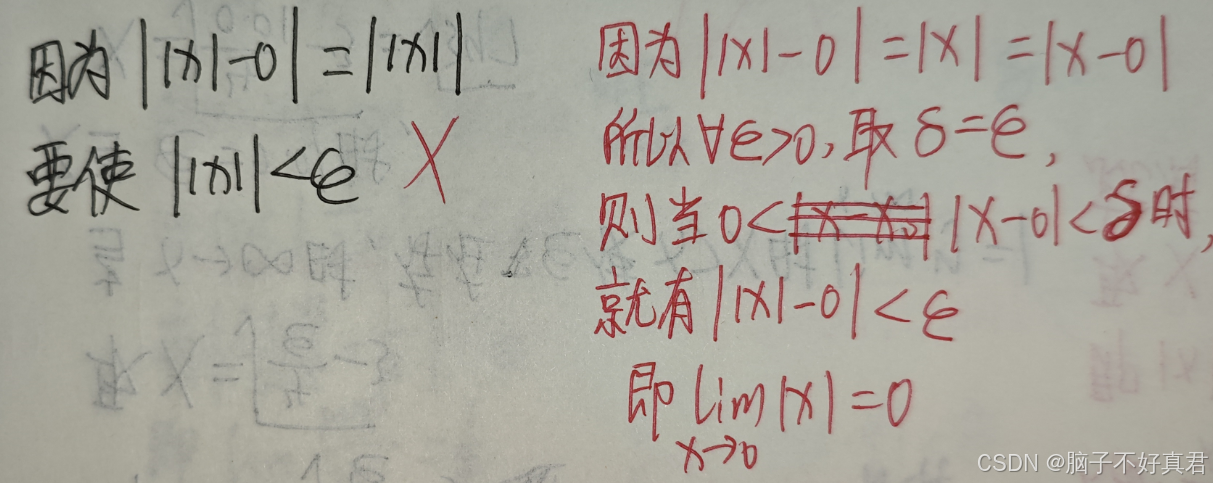 因为||x|-0|=||x||
要使||x||<ε X
因为||x|-0|=|x|=|x-0|
所以∀ε>0,取δ=ε,
则当0<|x-0|<δ时,
就有||x|-0|<ε
即lim|x|=0
x→0
CSDN @脑子不好真君